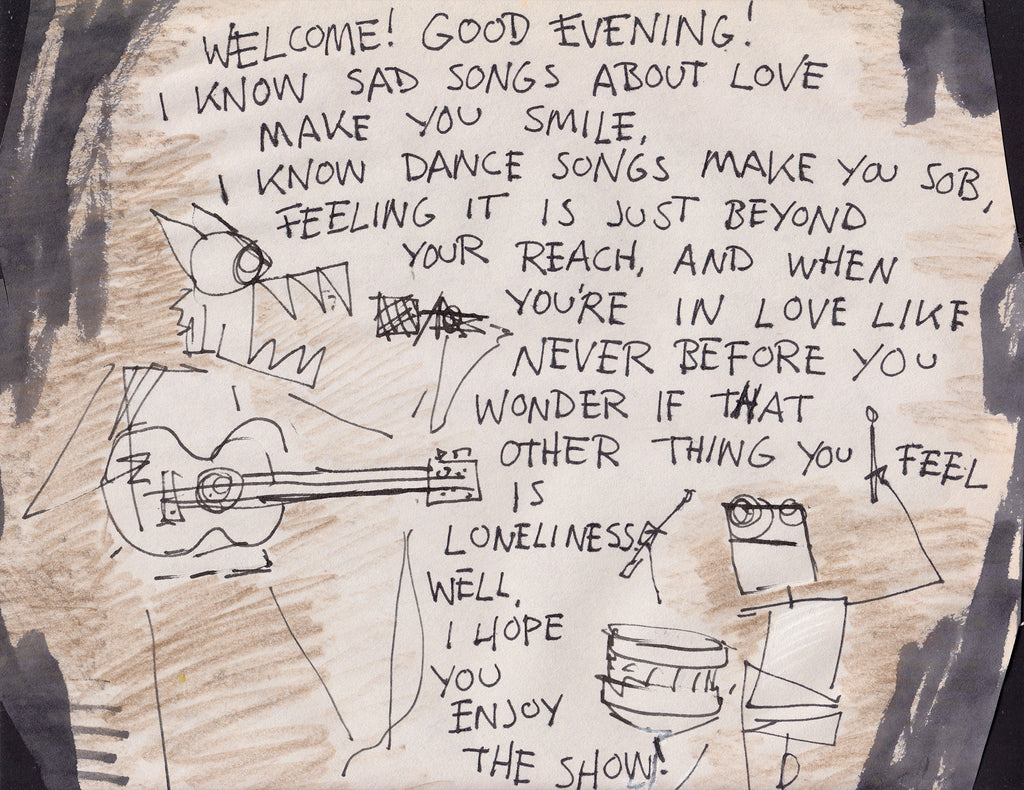 WELCOME! GOOD EVENING!
I KNOW SAD SONGS ABOUT LOVE
MAKE YOU SMILE,
I KNOW DANCE SONGS MAKE YOU SOB,
FEELING IT IS JUST BEYOND
YOUR REACH, AND WHEN
YOU'RE IN LOVE LIKE
NEVER BEFORE YOU
WONDER IF THAT
OTHER THING YOU FEEL
IS
LONELINESS.
WELL,
I HOPE
YOU
ENJOY
THE SHOW!